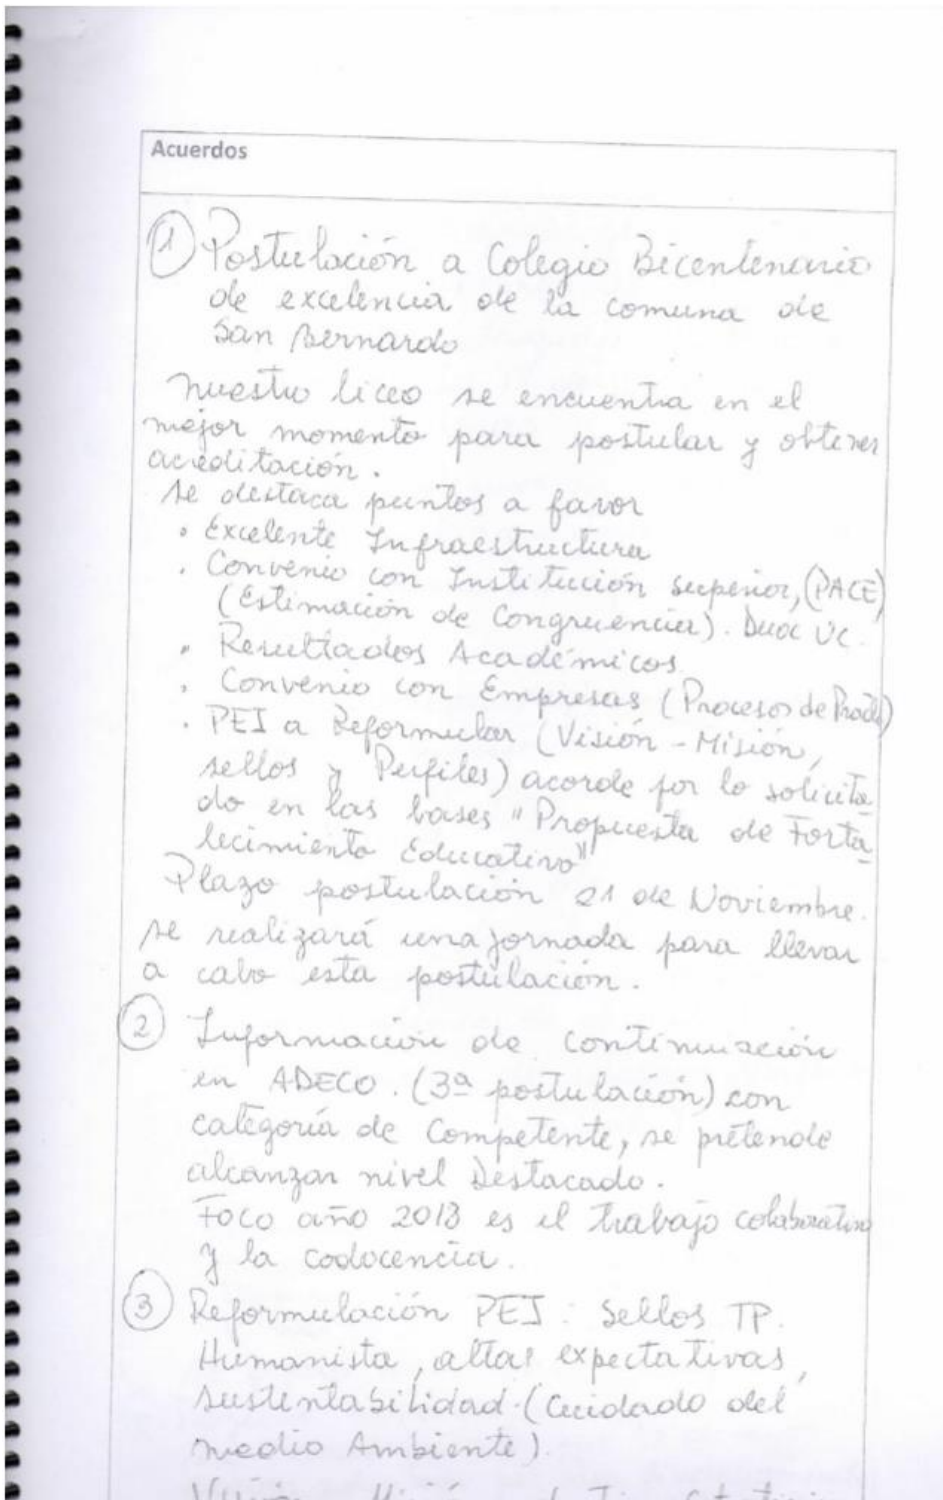 Acuerdos
① Postulación a Colegio Bicentenario
de excelencia de la comuna de
San Bernardo
Nuestro liceo se encuentra en el
mejor momento para postular y obtener
acreditación.
se destaca puntos a favor
• Excelente Infraestructura
• Convenio con Institución superior, (PACE)
(Estimación de Congruencia). Duoc UC.
• Resultados Académicos.
• Convenio con Empresas (Procesos de
• PEI a Reformular (Visión - Misión,
sellos y Perfiles) acorde por lo solicita
do en las bases "Propuesta de Forta
lecimiento Educativo"
Plazo postulación 21 de Noviembre.
se realizará una jornada para llevar
a cabo esta postulación.
② Información de continuación
en ADECO. (3ª postulación) con
categoría de Competente, se pretende
alcanzar nivel Destacado.
Foco año 2018 es el trabajo colaborativo
y la codocencia.
③ Reformulación PEI: Sellos TP.
Humanista, altas expectativas,
sustentabilidad. (Cuidado del
medio Ambiente).